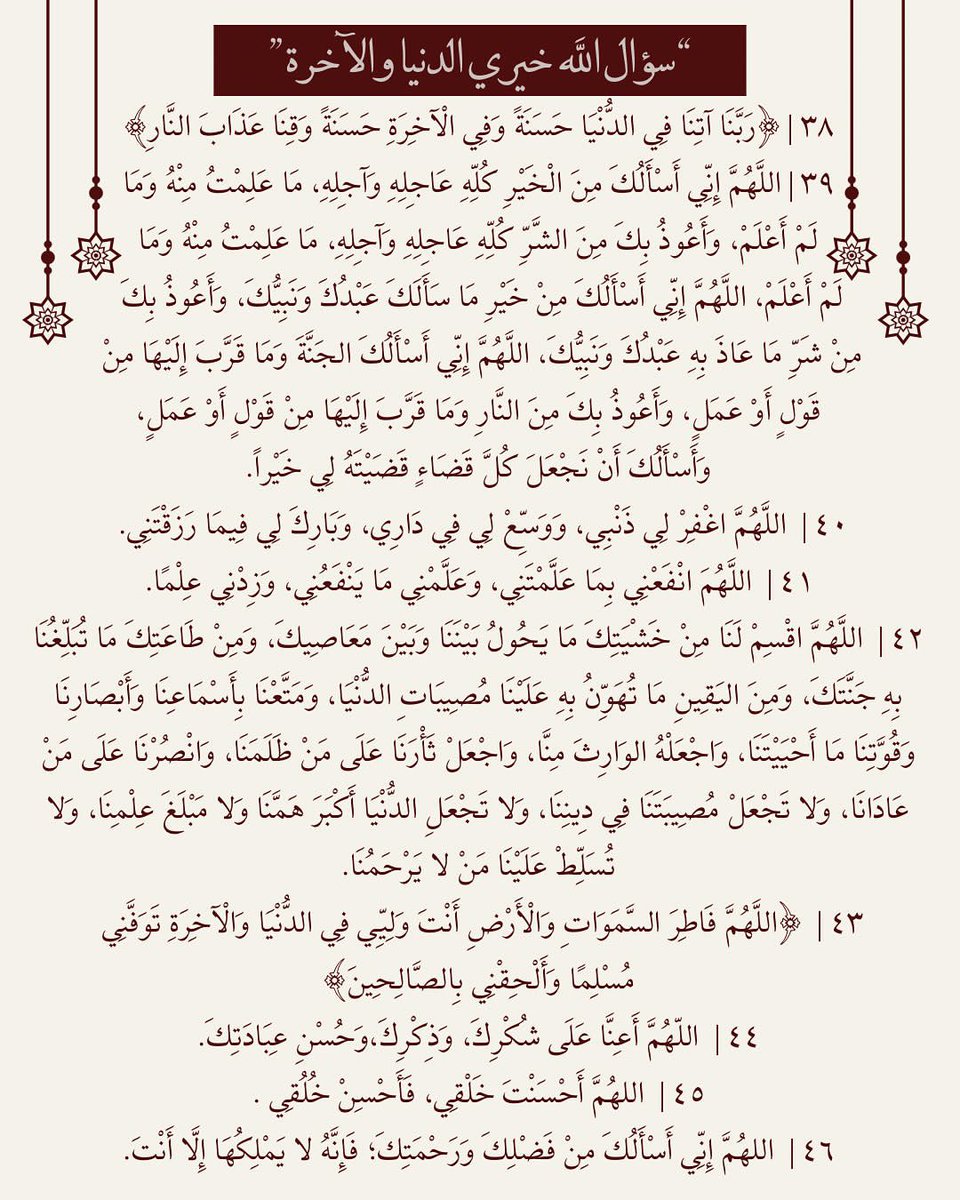 “سؤال الله خيري الدنيا والآخرة”
٣٨ | ﴿رَبَّنَا آتِنَا فِي الدُّنْيَا حَسَنَةً وَفِي الْآخِرَةِ حَسَنَةً وَقِنَا عَذَابَ النَّارِ﴾
٣٩ | اللَّهُمَّ إِنِّي أَسْأَلُكَ مِنَ الْخَيْرِ كُلِّهِ عَاجِلِهِ وَآجِلِهِ، مَا عَلِمْتُ مِنْهُ وَمَا
لَمْ أَعْلَمْ، وَأَعُوذُ بِكَ مِنَ الشَّرِّ كُلِّهِ عَاجِلِهِ وَآجِلِهِ، مَا عَلِمْتُ مِنْهُ وَمَا
لَمْ أَعْلَمْ، اللَّهُمَّ إِنِّي أَسْأَلُكَ مِنْ خَيْرِ مَا سَأَلَكَ عَبْدُكَ وَنَبِيُّكَ، وَأَعُوذُ بِكَ
مِنْ شَرِّ مَا عَاذَ بِهِ عَبْدُكَ وَنَبِيُّكَ، اللَّهُمَّ إِنِّي أَسْأَلُكَ الجَنَّةَ وَمَا قَرَّبَ إِلَيْهَا مِنْ
قَوْلٍ أَوْ عَمَلٍ، وَأَعُوذُ بِكَ مِنَ النَّارِ وَمَا قَرَّبَ إِلَيْهَا مِنْ قَوْلٍ أَوْ عَمَلٍ،
وَأَسْأَلُكَ أَنْ نَجْعَلَ كُلَّ قَضَاءٍ قَضَيْتَهُ لِي خَيْراً.
٤٠ | اللَّهُمَّ اغْفِرْ لِي ذَنْبِي، وَوَسِّعْ لِي فِي دَارِي، وَبَارِكَ لِي فِيمَا رَزَقْتَنِي.
٤١ | اللَّهُمَ انْفَعْنِي بِمَا عَلَّمْتَنِي، وَعَلَّمْنِي مَا يَنْفَعُنِي، وَزِدْنِي عِلْمًا.
٤٢ | اللَّهُمَّ اقْسِمْ لَنَا مِنْ خَشْيَتِكَ مَا يَحُولُ بَيْنَنَا وَبَيْنَ مَعَاصِيكَ، وَمِنْ طَاعَتِكَ مَا تُبَلِّغُنَا
بِهِ جَنَّتَكَ، وَمِنَ اليَقِينِ مَا تُهَوِّنُ بِهِ عَلَيْنَا مُصِيبَاتِ الدُّنْيَا، وَمَتَّعْنَا بِأَسْمَاعِنَا وَأَبْصَارِنَا
وَقُوَّتِنَا مَا أَحْيَيْتَنَا، وَاجْعَلْهُ الوَارِثَ مِنَّا، وَاجْعَلْ ثَأْرَنَا عَلَى مَنْ ظَلَمَنَا، وَانْصُرْنَا عَلَى مَنْ
عَادَانَا، وَلا تَجْعَلْ مُصِيبَتَنَا فِي دِينِنَا، وَلا تَجْعَلِ الدُّنْيَا أَكْبَرَ هَمَّنَا وَلا مَبْلَغَ عِلْمِنَا، وَلا
تُسَلِّطْ عَلَيْنَا مَنْ لا يَرْحَمُنَا.
٤٣ | ﴿اللَّهُمَّ فَاطِرَ السَّمَوَاتِ وَالْأَرْضِ أَنْتَ وَلِيِّي فِي الدُّنْيَا وَالْآخِرَةِ تَوَفَّنِي
مُسْلِمًا وَأَلْحِقْنِي بِالصَّالِحِينَ﴾
٤٤ | اللّهُمَّ أَعِنَّا عَلَى شُكْرِكَ، وَذِكْرِكَ،وَحُسْنِ عِبَادَتِكَ.
٤٥ | اللهُمَّ أَحْسَنْتَ خَلْقِي، فَأَحْسِنْ خُلُقِي .
٤٦ | اللهُمَّ إِنِّي أَسْأَلُكَ مِنْ فَضْلِكَ وَرَحْمَتِكَ؛ فَإِنَّهُ لا يَمْلِكُهَا إِلَّا أَنْتَ.